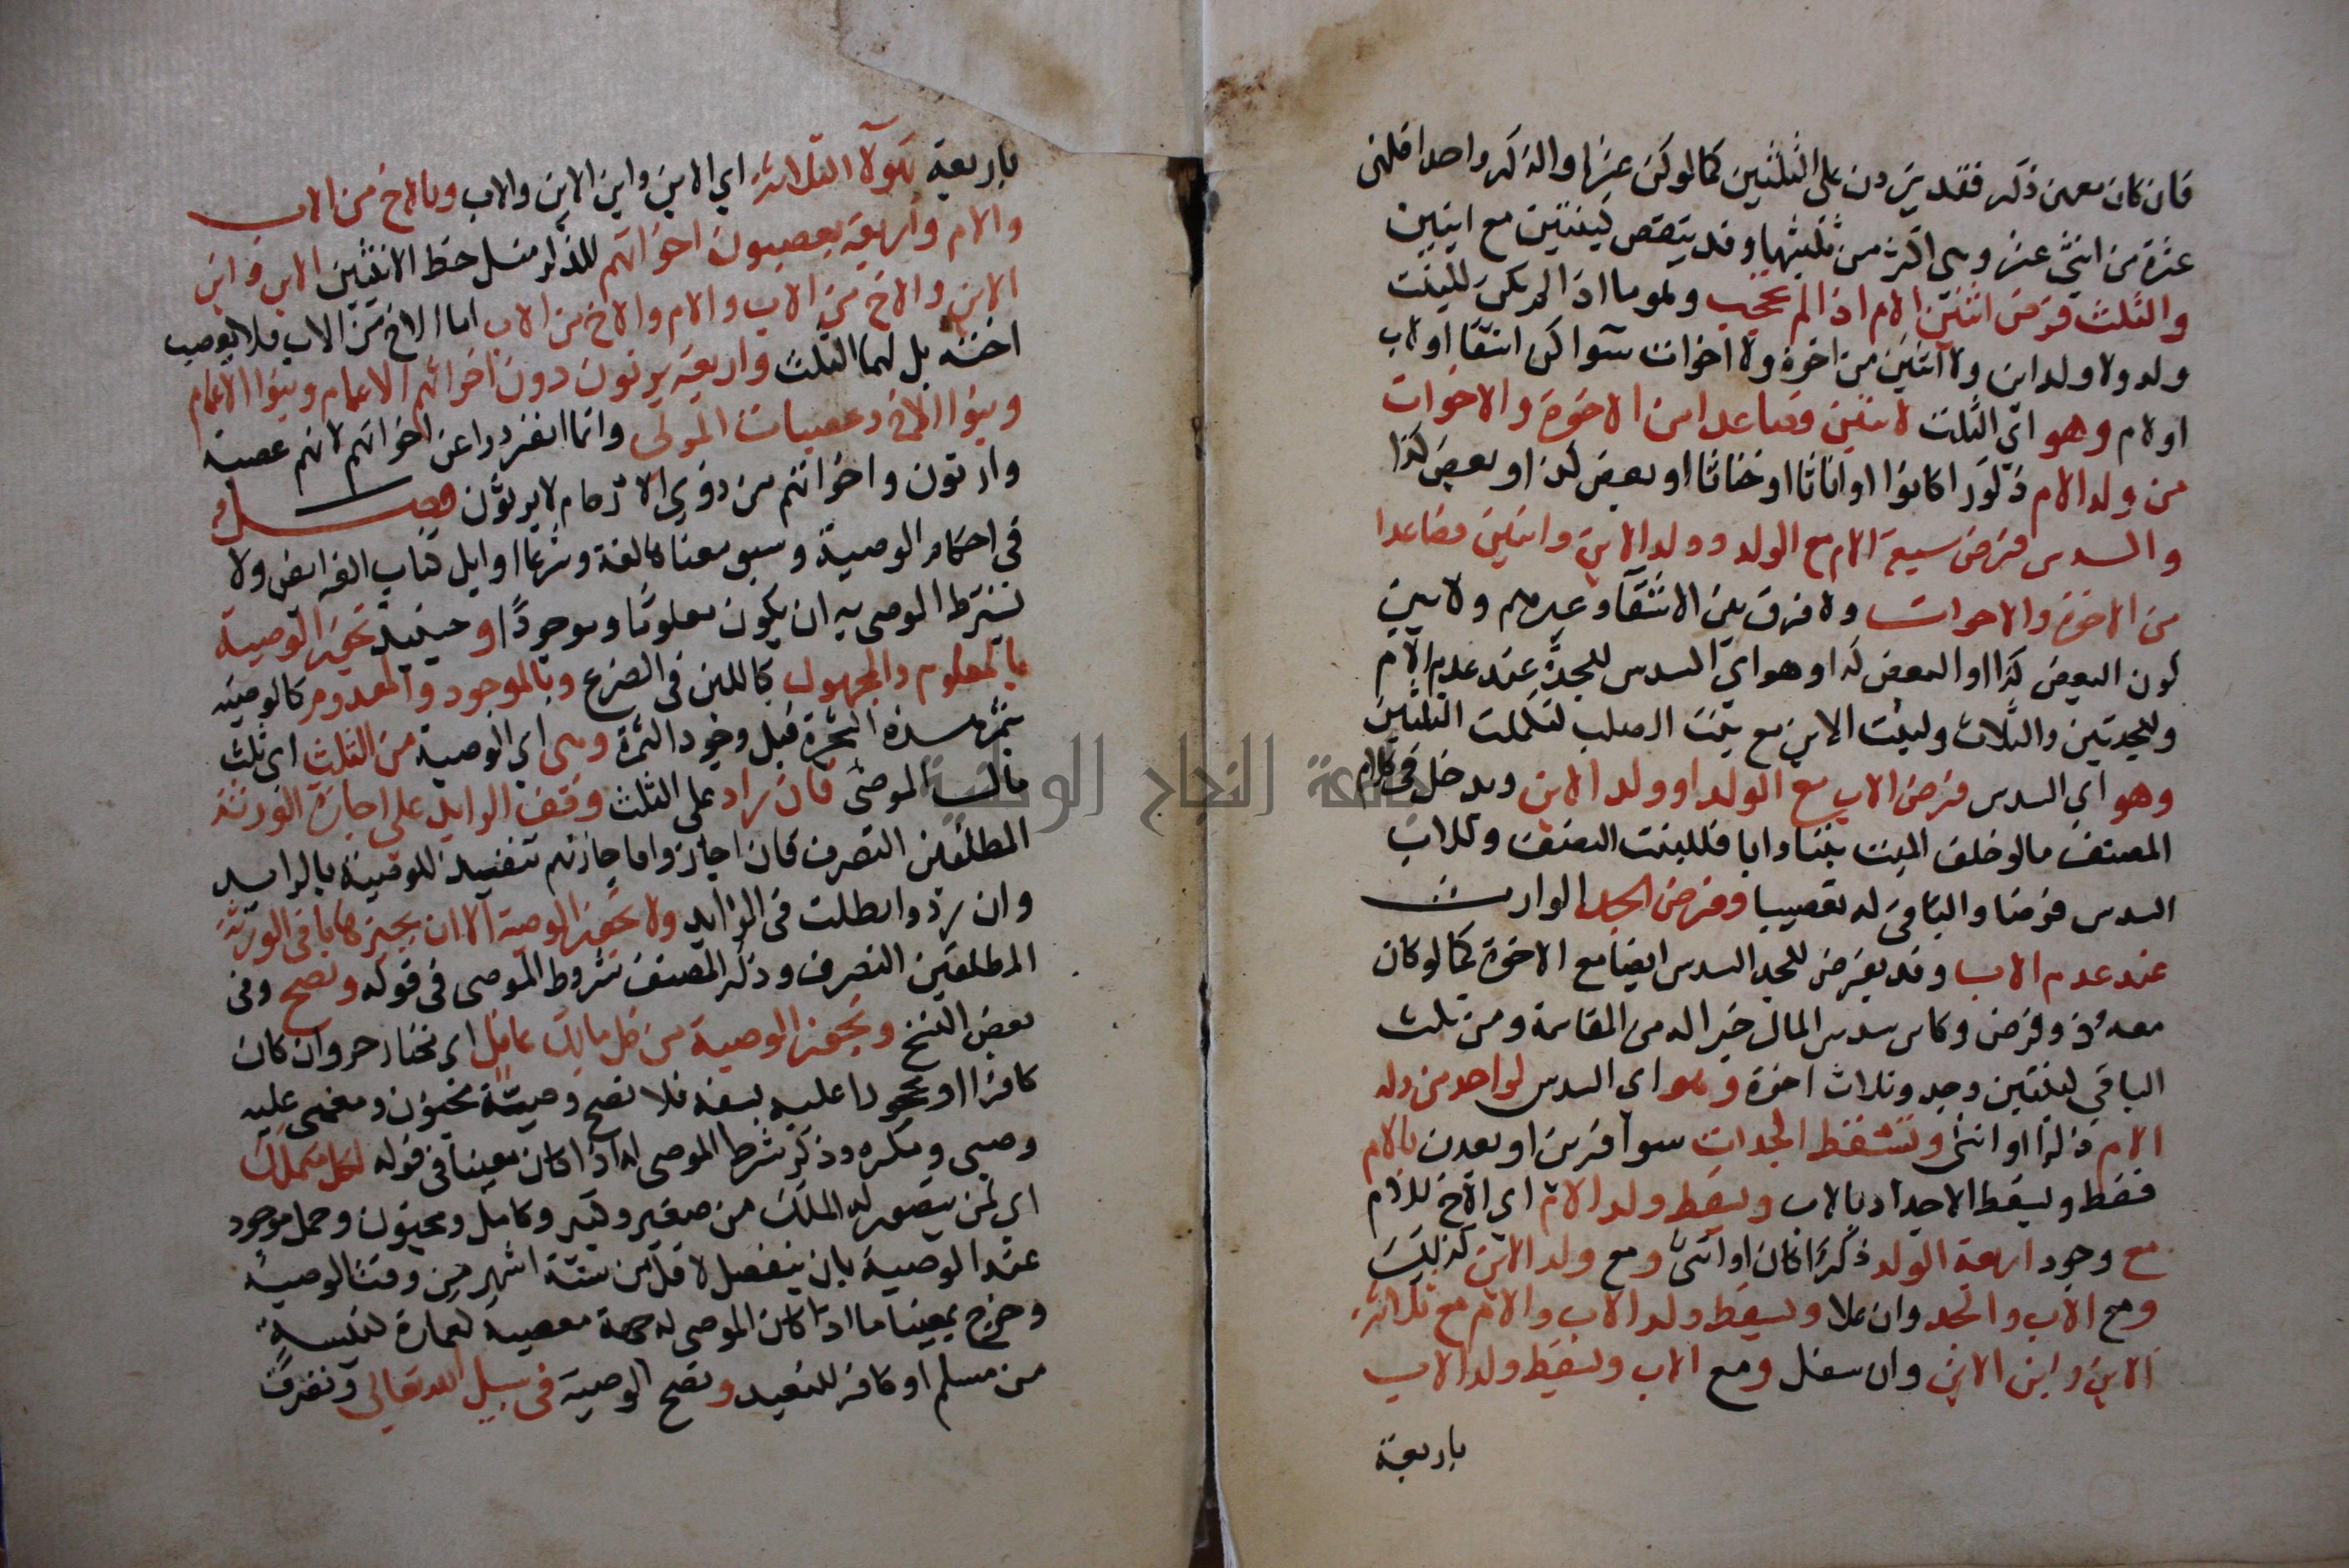 فان كان معهن ذكر فقد يزدن على الثلثين كما لو كن عشرا والذكر واحدا فلهن
عشرة من اثني عشر وهي اكثر من ثلثيها وقد ينقص كبنتين مع ابنين
والثلث فرض اثنين الام اذا لم تحجب وهو ما اذا لم يكن للميت
ولد ولا ولد ابن ولا اثنين من اخوة ولا اخوات سوآ كن اشقا او لاب
او لام وهو اي الثلث لاثنين فصاعدا من الاخوة والاخوات
من ولد الام ذكورا كانوا او اناثا او خناثا او بعض كذا او بعض كذا
والسدس فرض سبعة الام مع الولد و ولد الابن واثنين فصاعدا
من الاخوة والاخوات ولا فرق بين الاشقآ وغيرهم ولا بين
كون البعض كذا او البعض كذا وهو اي السدس للجدة عند عدم الام
وللجدتين والثلاث ولبنت الابن مع بنت الصلب لتكملت الثلثين
وهو اي السدس فرض الاب مع الولد او ولد الابن ويدخل في كلام
المصنف ما لو خلف الميت بنتا وابا فللبنت النصف وللاب
السدس فرضا والباقي له تعصيبا وفرض الجد الوارث
عند عدم الاب وقد يفرض للجد السدس ايضا مع الاخوة كما لو كان
معه ذو فرض وكان سدس المال خيرا له من المقاسمة ومن ثلث
الباقي كبنتين وجد وثلاث اخوة وهو اي السدس لواحد من ولد
الام ذكرا او انثى وتسقط الجدات سوآ قربن او بعدن بالام
فقط وليسقط الاجداد بالاب ويسقط ولد الام اي الاخ للام
مع وجود اربعة الولد ذكرا كان او انثى ومع ولد الابن كذلك
ومع الاب والجد وان علا ويسقط ولد الاب والام مع ثلاثة
الابن وابن الابن وان سفل ومع الاب ويسقط ولد الاب
باربعة
باربعة بهولآ الثلاثة اي الابن وابن الابن والاب وبالاخ من الاب
والام واربعة يعصبون اخواتهم للذكر مثل حظ الانثيين الابن وابن
الابن والاخ من الاب والام والاخ من الاب اما الاخ من الاب فلا يعصب
اخته بل لهما الثلث واربعة يرثون دون اخواتهم الاعمام وبنوا الاعمام
وبنوا الاخ وعصبات المولى وانما انفردوا عن اخواتهم لانهم عصبة
وارثون واخواتهم من ذوي الارحام لا يرثون فصل
في احكام الوصية وسبق معناها لغة وشرعا اوايل كتاب الفرايض ولا
تشترط الموصى به ان يكون معلوما وموجودا وحينيذ تجوز الوصية
بالمعلوم والمجهول كاللبن في الضرع وبالموجود والمعدوم كالوصية
بثمر هذه الشجرة قبل وجود الثمرة وهي اي الوصية من الثلث اي ثلث
مال الموصى فان زاد على الثلث وقف الزايد على اجازة الورثة
المطلقين التصرف فان اجازوا فاجازتهم تنفيذ للوصية بالزايد
وان ردوا بطلت في الزايد ولا تجوز الوصية الا ان يجيزها باقي الورثة
المطلقين التصرف وذكر المصنف شروط الموصى في قوله وتصح وفي
بعض النسخ وتجوز الوصية من كل مالك عاقل اي مختار حر وان كان
كافرا او محجورا عليه بسفه فلا تصح وصية مجنون ومغمى عليه
وصبي ومكره وذكر شرط الموصى له اذا كان معينا في قوله لكل متملك
اي لمن يتصور له الملك من صغير وكبير وكامل ومجنون وحمل موجود
عند الوصية بان ينفصل لاقل من ستة اشهر من وقت الوصية
وخرج بمعينا ما اذا كان الموصى له جهة معصية كعمارة كنيسة
من مسلم او كافر للتعبد وتصح الوصية في سبيل الله تعالى وتصرف
جامعة النجاح الوطنية